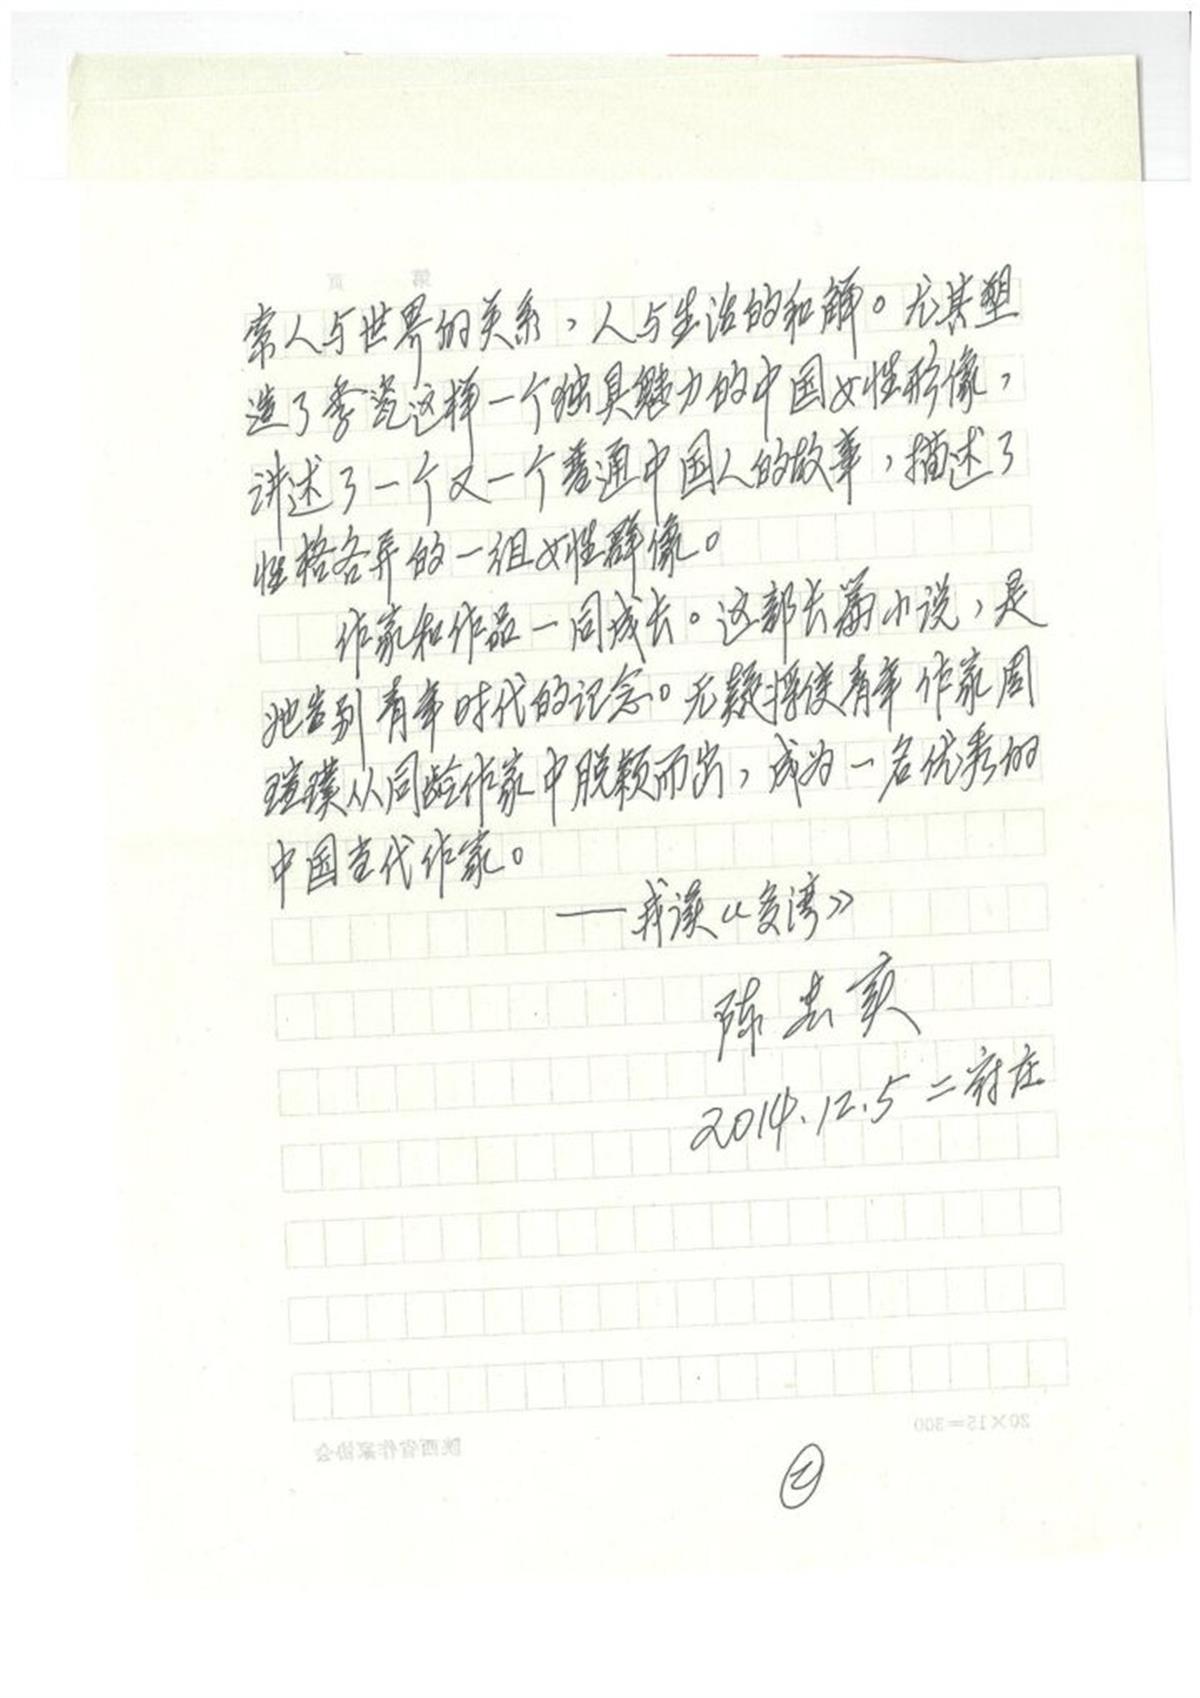 第 页
常人与世界的关系，人与生活的和解。尤其塑
造了季瓷这样一个独具魅力的中国女性形像，
讲述了一个又一个普通中国人的故事，描述了
性格各异的一组女性群像。
作家和作品一同成长。这部长篇小说，是
她告别青年时代的记念。无疑将使青年作家周
瑄璞从同龄作家中脱颖而出，成为一名优秀的
中国当代作家。
——我读《多湾》
陈忠实
2014.12.5 二府庄
20×15=300
陕西省作家协会
②